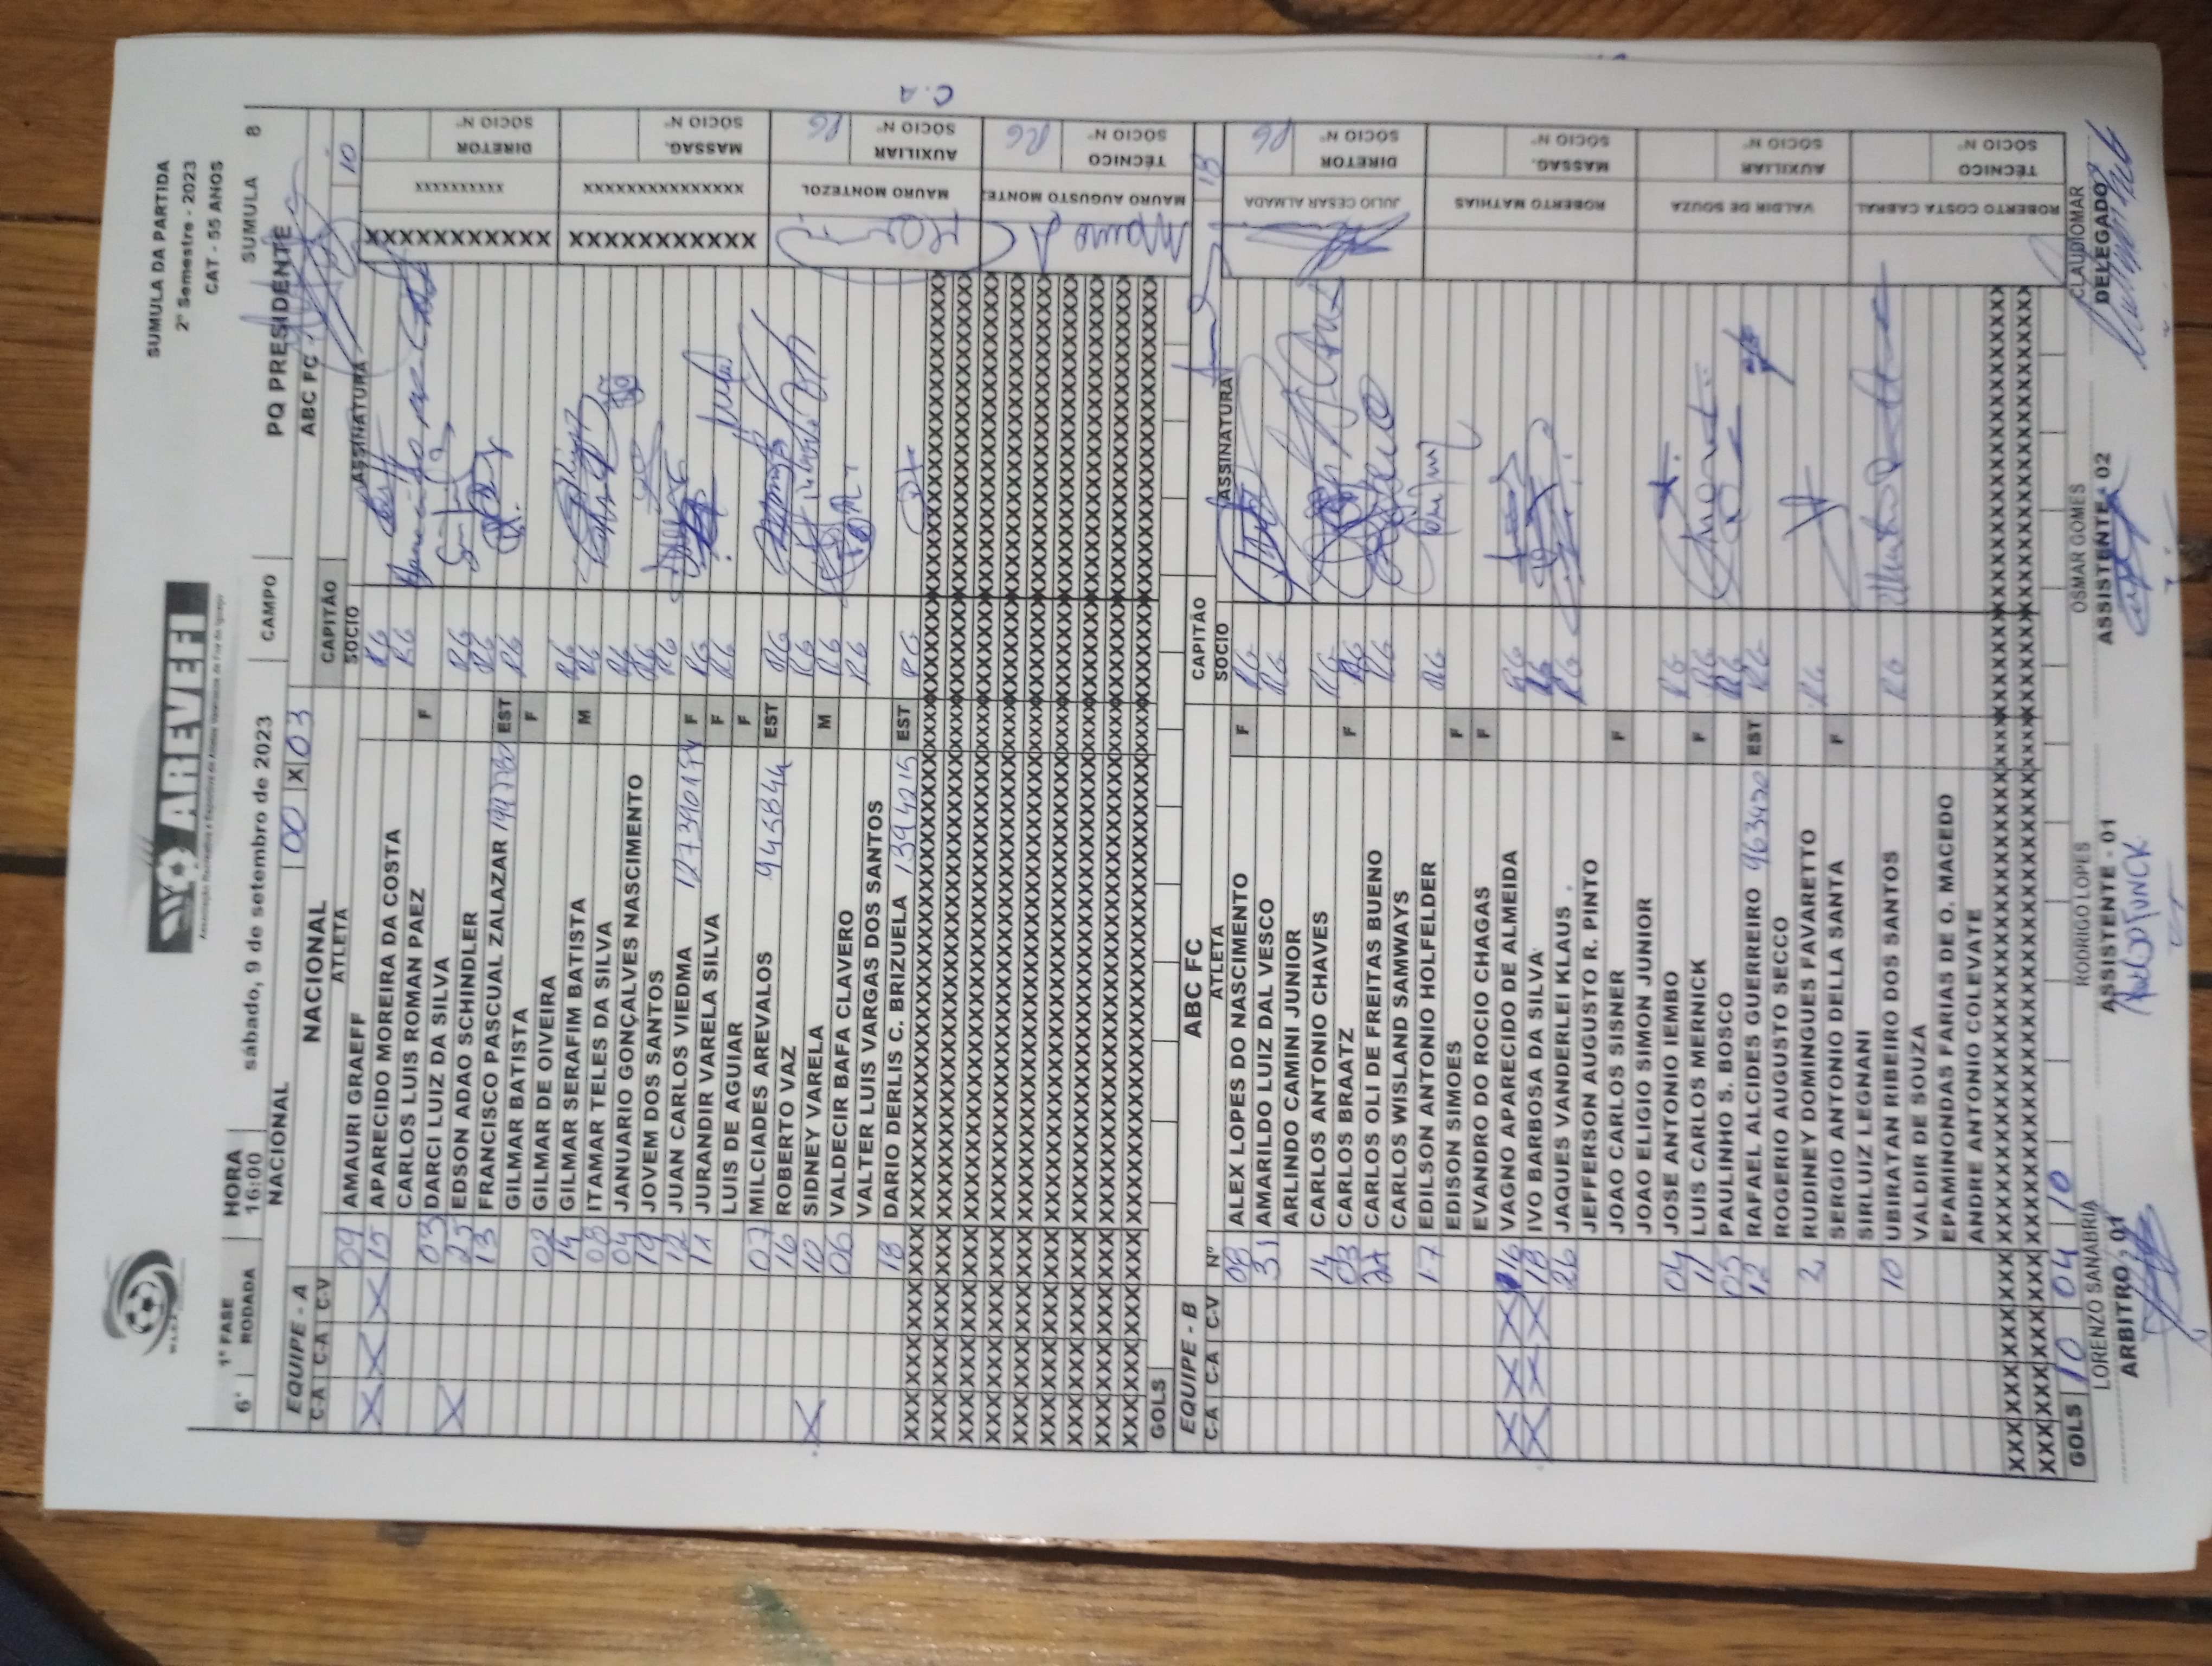 SUMULA DA PARTIDA
2° Semestre - 2023
CAT - 55 ANOS
AREVEFI
1° FASE
HORA
6° RODADA 16:00 sábado, 9 de setembro de 2023 CAMPO SUMULA 8
NACIONAL 00 X 03 PQ PRESIDENTE
ABC FC
EQUIPE - A NACIONAL CAPITÃO 10
C-A C-A C-V ATLETA SOCIO ASSINATURA
09 AMAURI GRAEFF RG
X X X 15 APARECIDO MOREIRA DA COSTA RG
CARLOS LUIS ROMAN PAEZ F
03 DARCI LUIZ DA SILVA RG
X 25 EDSON ADAO SCHINDLER RG
13 FRANCISCO PASCUAL ZALAZAR EST RG
GILMAR BATISTA F
02 GILMAR DE OIVEIRA RG
14 GILMAR SERAFIM BATISTA M RG
08 ITAMAR TELES DA SILVA RG
04 JANUARIO GONÇALVES NASCIMENTO RG
19 JOVEM DOS SANTOS RG
12 JUAN CARLOS VIEDMA F RG
11 JURANDIR VARELA SILVA F RG
LUIS DE AGUIAR F
07 MILCIADES AREVALOS 9458844 EST RG
16 ROBERTO VAZ RG
X 10 SIDNEY VARELA M RG
06 VALDECIR BAFA CLAVERO RG
VALTER LUIS VARGAS DOS SANTOS
18 DARIO DERLIS C. BRIZUELA 1394215 EST RG
GOLS
XXXXXXXXXX DIRETOR SOCIO N°
XXXXXXXXXXXXXXX MASSAG. SOCIO N°
MAURO MONTEZOL AUXILIAR SOCIO N° RG
MAURO AUGUSTO MONTE TÉCNICO SOCIO N° RG
C.A
EQUIPE - B ABC FC CAPITÃO 18
C-A C-A C-V N° ATLETA SOCIO ASSINATURA
08 ALEX LOPES DO NASCIMENTO F RG
31 AMARILDO LUIZ DAL VESCO RG
ARLINDO CAMINI JUNIOR
14 CARLOS ANTONIO CHAVES RG
03 CARLOS BRAATZ F RG
CARLOS OLI DE FREITAS BUENO RG
CARLOS WISLAND SAMWAYS
17 EDILSON ANTONIO HOLFELDER RG
EDISON SIMOES F
EVANDRO DO ROCIO CHAGAS F
X X X 16 VAGNO APARECIDO DE ALMEIDA RG
X X X 18 IVO BARBOSA DA SILVA RG
26 JAQUES VANDERLEI KLAUS RG
JEFFERSON AUGUSTO R. PINTO
JOAO CARLOS SISNER F
JOAO ELIGIO SIMON JUNIOR
04 JOSE ANTONIO IEMBO RG
11 LUIS CARLOS MERNICK F RG
05 PAULINHO S. BOSCO RG
12 RAFAEL ALCIDES GUERREIRO EST RG
ROGERIO AUGUSTO SECCO
2 RUDINEY DOMINGUES FAVARETTO RG
SERGIO ANTONIO DELLA SANTA F
SIRLUIZ LEGNANI
10 UBIRATAN RIBEIRO DOS SANTOS RG
VALDIR DE SOUZA
EPAMINONDAS FARIAS DE O. MACEDO
ANDRE ANTONIO COLEVATE
GOLS 10 04 10
JULIO CESAR ALMADA DIRETOR SOCIO N° RG
ROBERTO MATHIAS MASSAG. SOCIO N°
VALDIR DE SOUZA AUXILIAR SOCIO N°
ROBERTO COSTA CABRAL TÉCNICO SOCIO N°
LORENZO SANABRIA RODRIGO LOPES OSMAR GOMES CLAUDIOMAR
ARBITRO 01 ASSISTENTE - 01 ASSISTENTE 02 DELEGADO